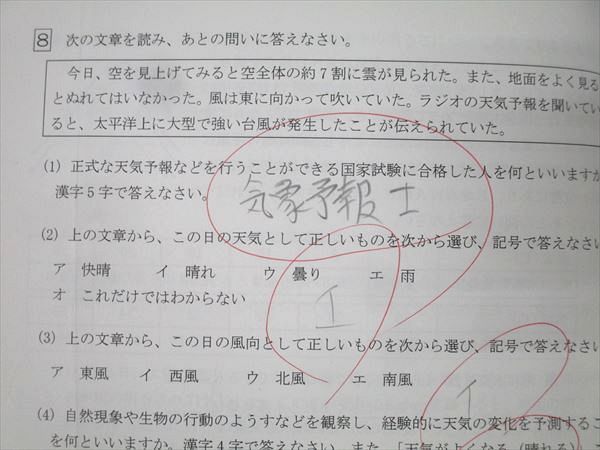 8 次の文章を読み、あとの問いに答えなさい。
今日、空を見上げてみると空全体の約7割に雲が見られた。また、地面をよく見る
とぬれてはいなかった。風は東に向かって吹いていた。ラジオの天気予報を聞いてい
ると、太平洋上に大型で強い台風が発生したことが伝えられていた。
(1) 正式な天気予報などを行うことができる国家試験に合格した人を何といいますか
漢字5字で答えなさい。
気象予報士
(2) 上の文章から、この日の天気として正しいものを次から選び、記号で答えなさい
ア 快晴 イ 晴れ ウ 曇り エ 雨
オ これだけではわからない
イ
(3) 上の文章から、この日の風向として正しいものを次から選び、記号で答えなさい
ア 東風 イ 西風 ウ 北風 エ 南風
イ
(4) 自然現象や生物の行動のようすなどを観察し、経験的に天気の変化を予測するこ
を何といいますか。漢字4字で答えなさい。また、「天気がよくなる(晴れる)」こ